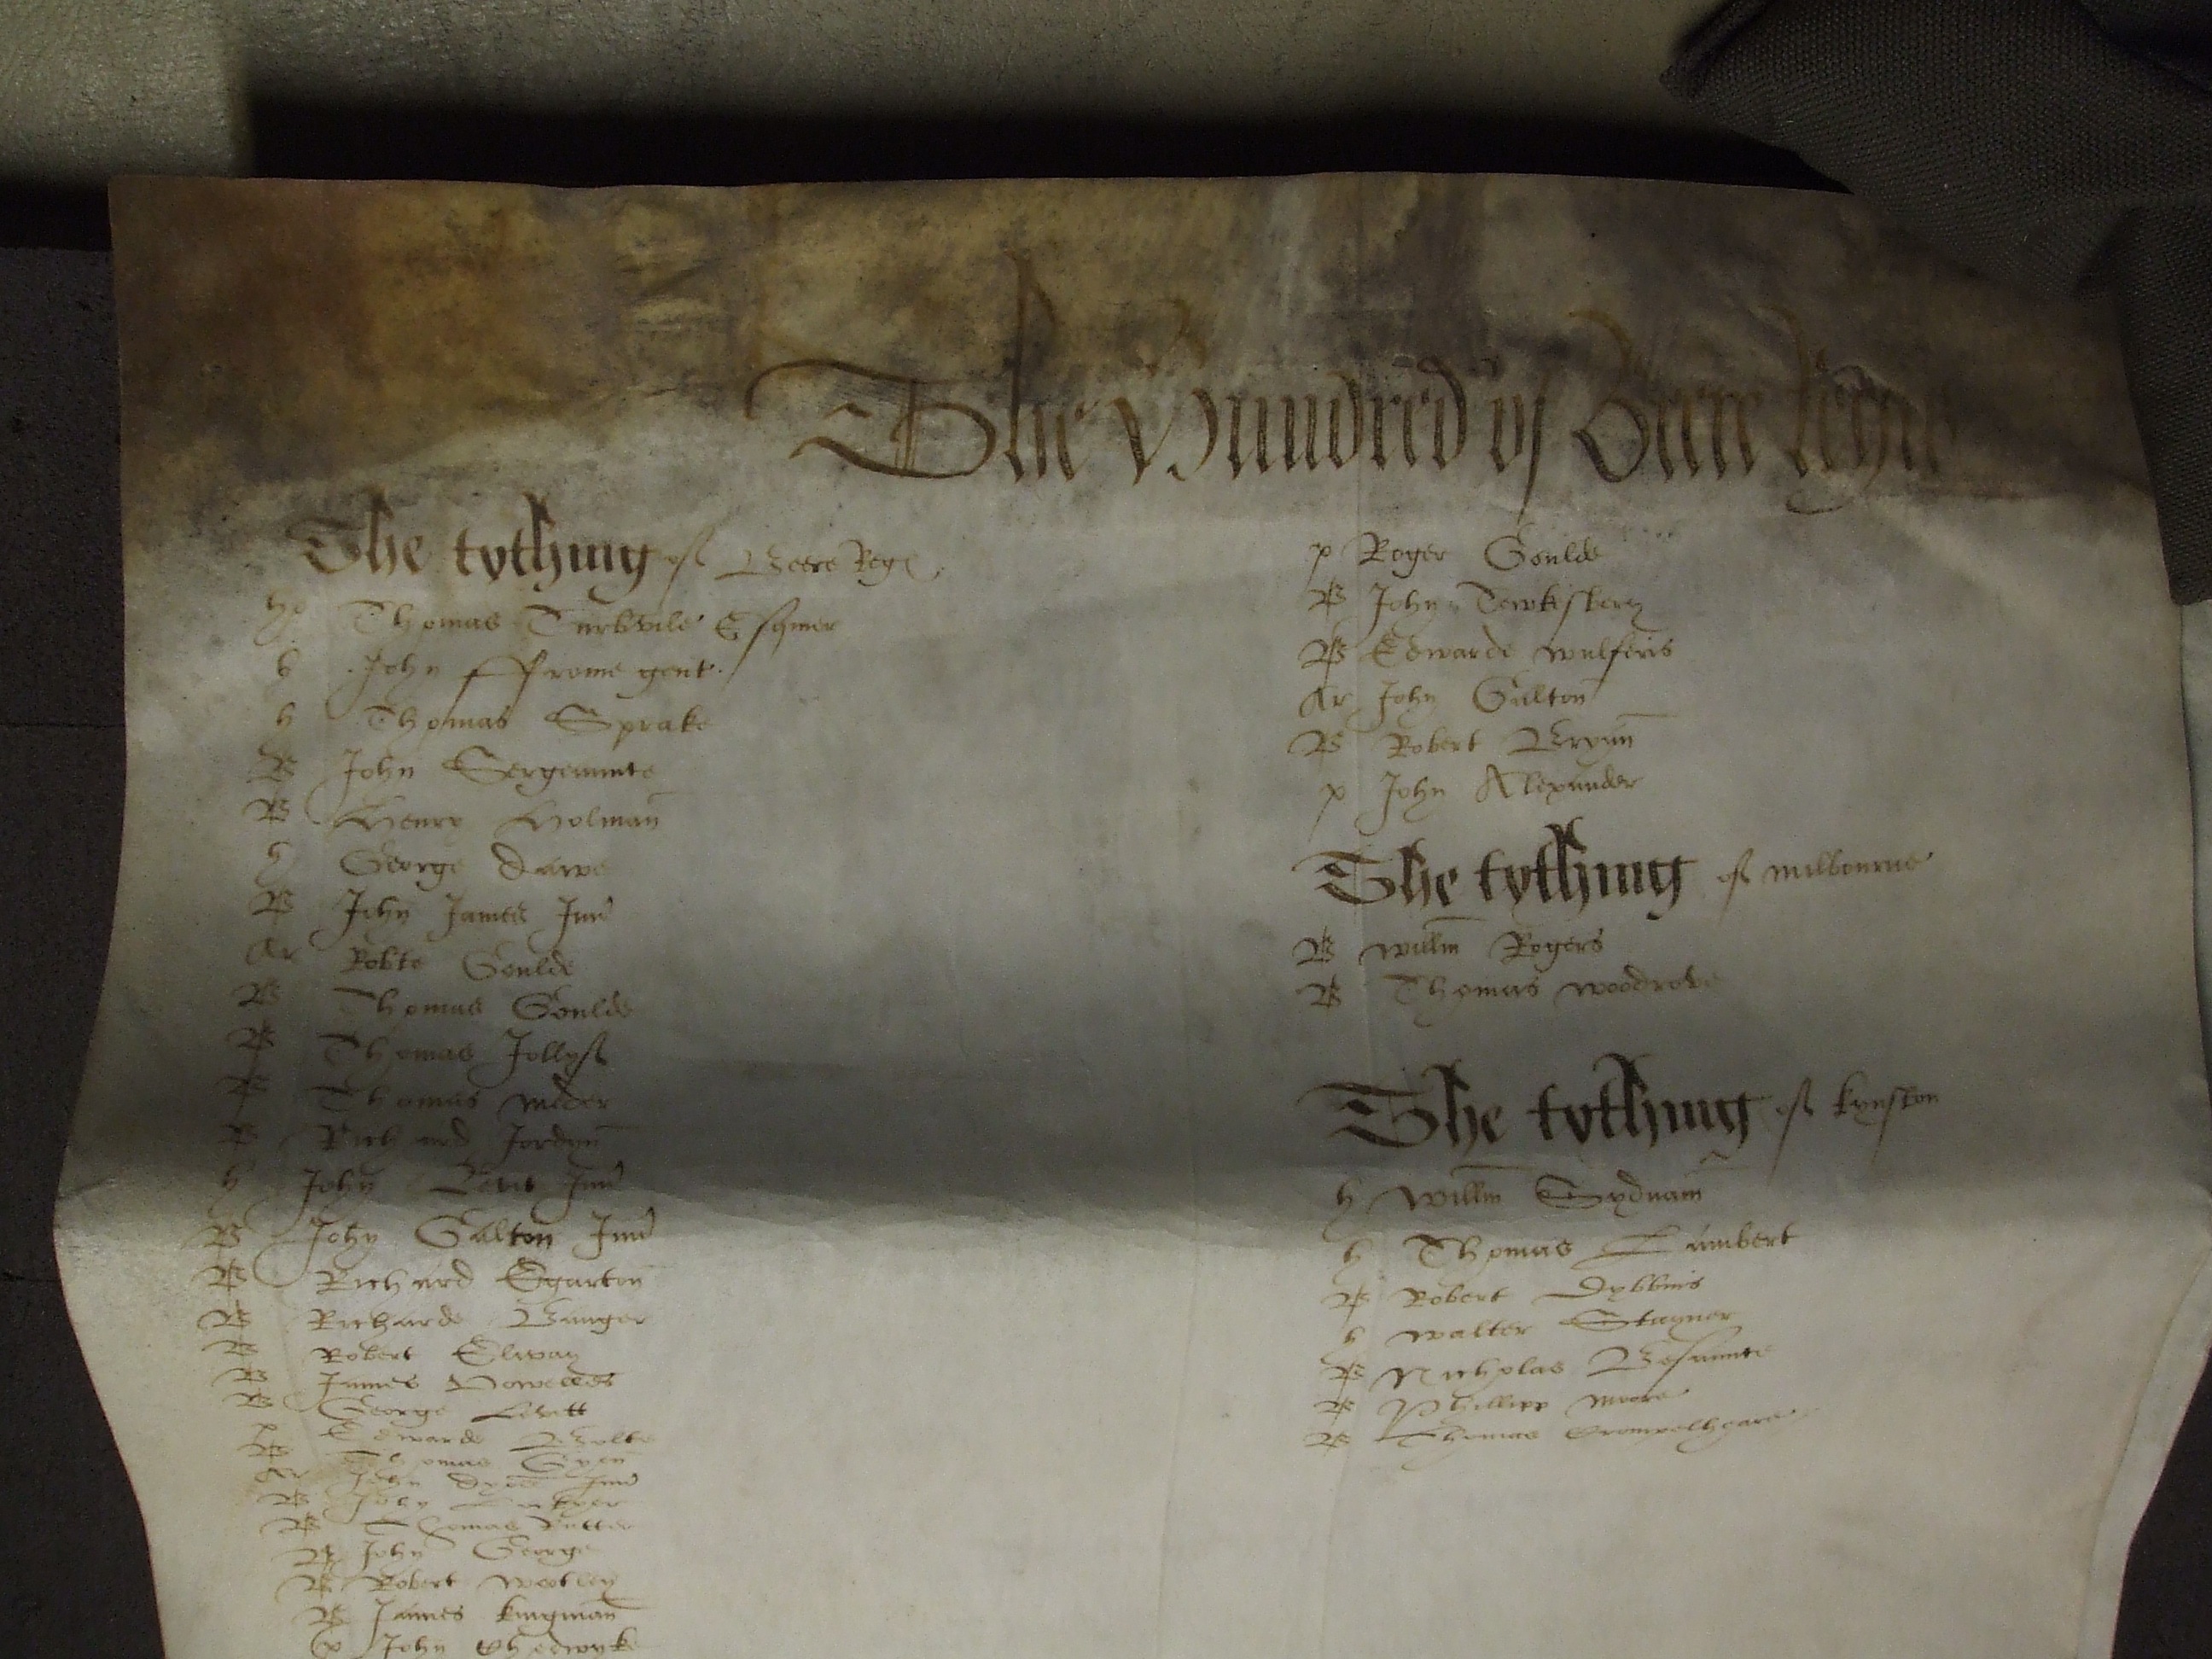 The Hundred of Beere Regis
The tything of Beere Reg
Thomas Turbvile Esqmer
h John ffrome gent.
h Thomas Sprake
B John Sergeaunte
B Henry Holman
h George Dawe
B John James Junr
Ar Robte Goulde
B Thomas Goulde
B Thomas Jollyff
P Thomas meder
P Richard Jordyn
h John Junr
B John Galton Junr
B Richard Egarton
B Richarde Bunger
B Robert Elway
B James
B George Levett
p Edwarde
B Thomas Gyen
Ar John Junr
B John
B Thomas Rutter
B John George
B Robert wotley
B James kingman
p John Chedwyke
p Roger Goulde
B John Tewkisbery
B Edwarde wulferis
Ar John Galton
B Robert Brynn
p John Alexander
The tything of milbourne
B willm Rogers
B Thomas woodrove
The tything of kynston
h willm Sydnam
h Thomas Lambert
B Robert Dybbins
h walter Stayner
B Nicholas Besaunte
B Phillipp moore
B Thomas